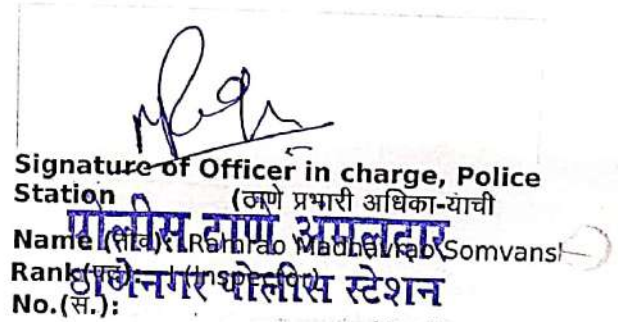 Signature of Officer in charge, Police
Station (ठाणे प्रभारी अधिका-याची
पोलीस ठाणे अमलदार
Name (नाव): Ramrao Madhavrao Somvanshi
Rank(पद): I (Inspector)
ठाणेनगर पोलीस स्टेशन
No.(सं.):